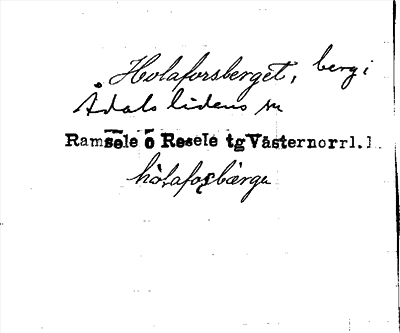 Holaforsberget, berg i
Ådals lidens sn
Ramsele o Resele tg Västernorrl. l.
hò̀lafoṣbärge